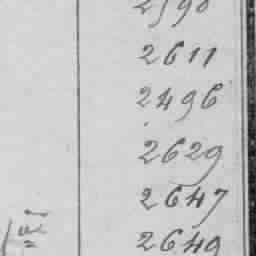 2611
2496
2629
2647
2649